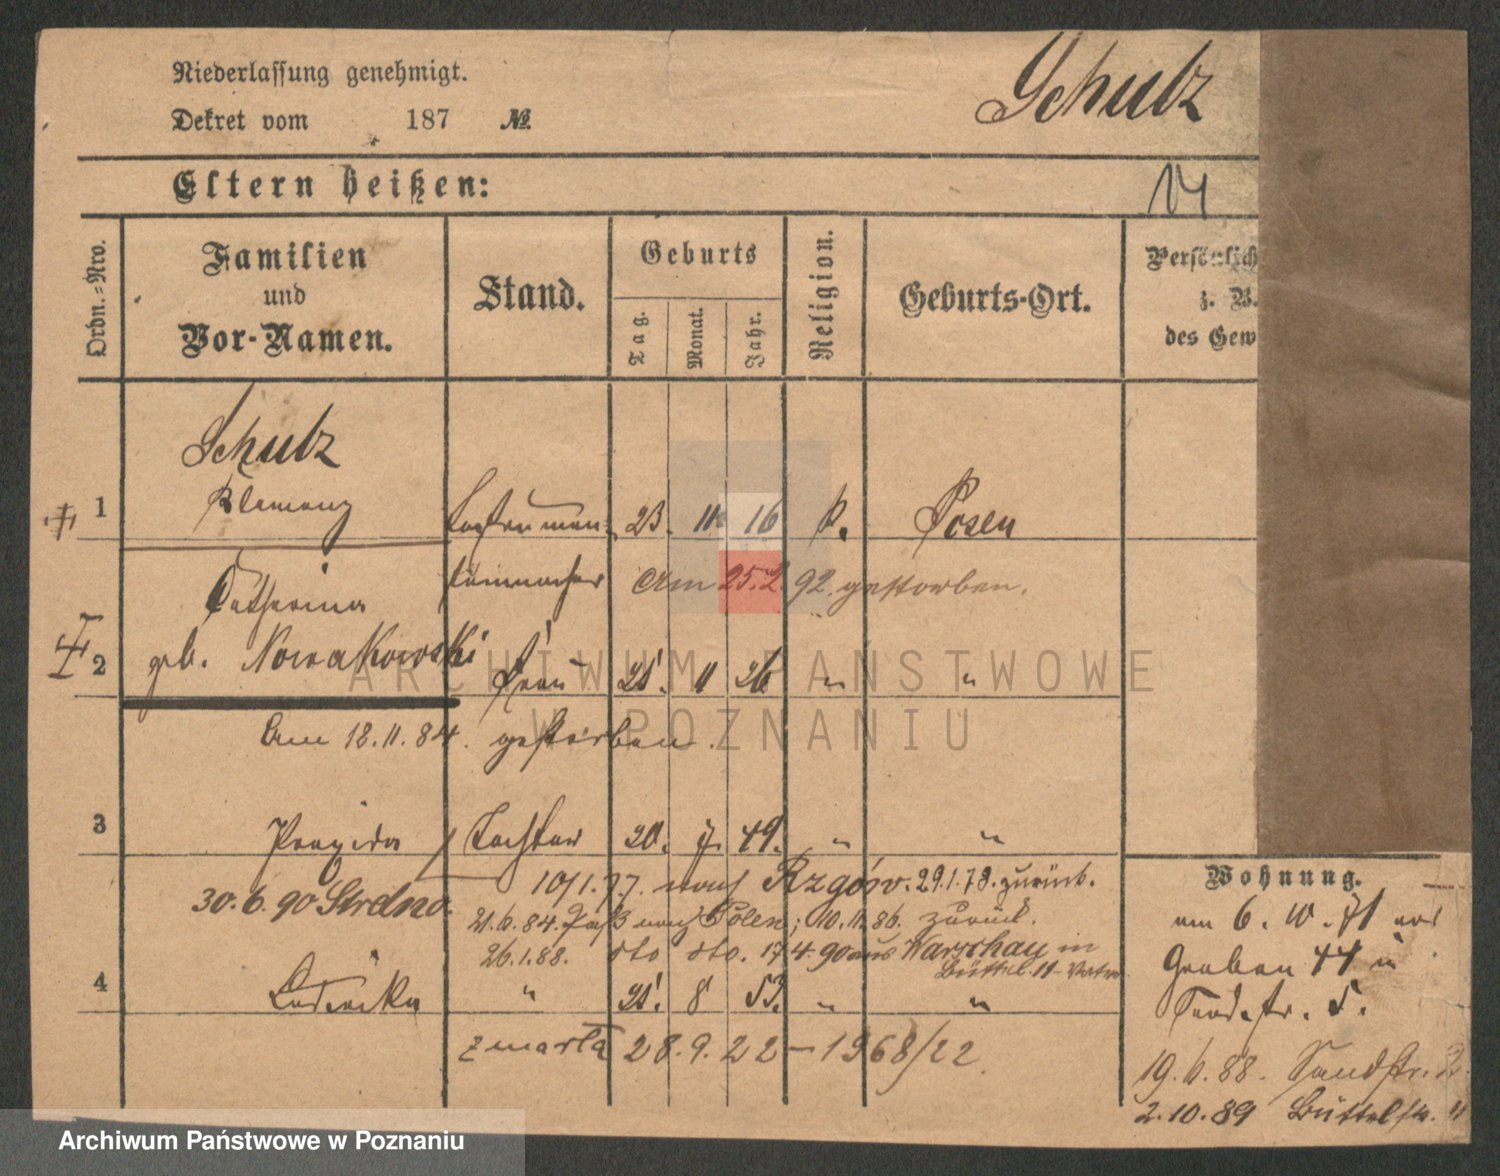 Niederlassung genehmigt.
Dekret vom 187 №
Schulz
Eltern heißen:
Ordn.-Nro.
Familien
und
Vor-Namen.
Stand.
Geburts
Tag.
Monat.
Jahr.
Religion.
Geburts-Ort.
Persönlich
z. B.
des Gew
Schulz
1 Klemenz Instrumen- 23. 11 16 k. Posen
Catharina am 25.2.92. gestorben.
2 geb. Nowakowski Frau 25. 11 26 " "
Am 12.11.84. gestorben.
3 Praxida Tochter 20. 7. 49. " "
10/1.77. nach Rzgów. 29.1.78. zurück.
30.6.90 Strelno.
21.6.84. Paß nach Polen; 10.11.86. zurück.
26.1.88. dto dto. 17 4.90 aus Warschau in
Büttel. 11
4 Ludwika " 25. 8 53. " "
zmarła 28.9.22 – 1968/22
Wohnung.
am 6. 10. 71 von
Graben 44 in
Sandstr. 5.
19.6.88. Sandstr. 2.
2.10.89 Büttelstr. 11
ARCHIWUM PAŃSTWOWE
W POZNANIU
Archiwum Państwowe w Poznaniu